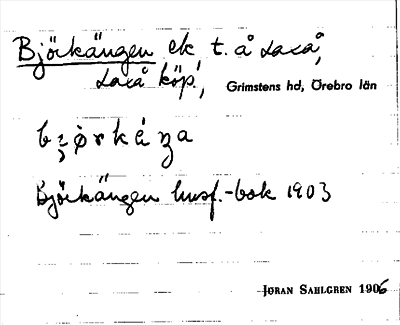 Björkängen ek t. å Laxå,
Laxå köp., Grimstens hd, Örebro län
Björkängen husf.-bok 1903
Jöran Sahlgren 1906